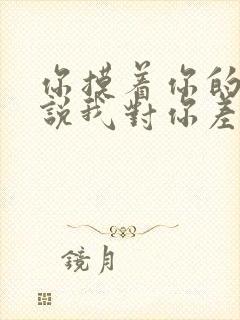 你摸着你的
說我對你差
鏡月